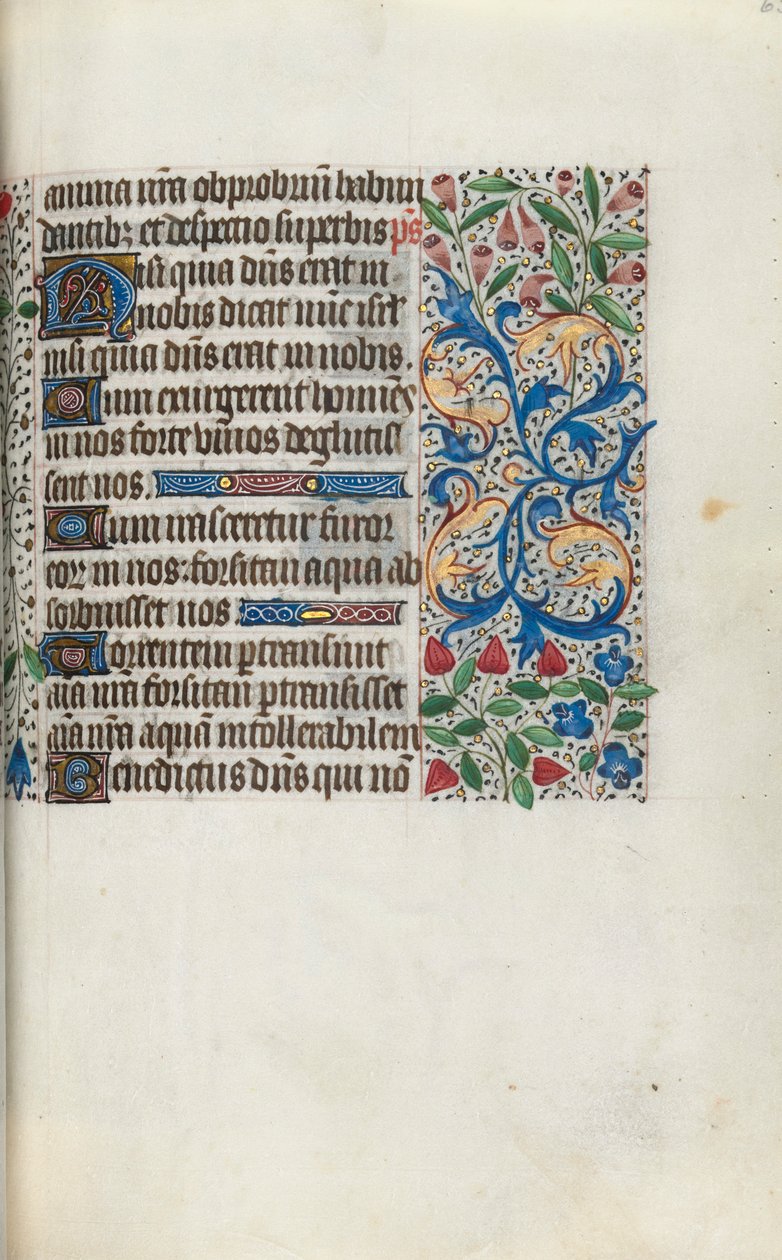 anima nr̄a obprobriū habun
dantibꝫ et despectio superbis ps̄
Nisi quia dn̄s erat in
nobis dicat nūc isrl̄
nisi quia dn̄s erat in nobis
Cum exurgerent homines
in nos forte viuos deglutis
sent nos.
Cum irasceretur furor
eoꝝ in nos: forsitan aqua ab
sorbuisset nos
Torrentem ꝑtransiuit
aīa nr̄a forsitan ꝑtransisset
aīa nr̄a aquā intollerabilem
Benedictus dn̄s qui nō